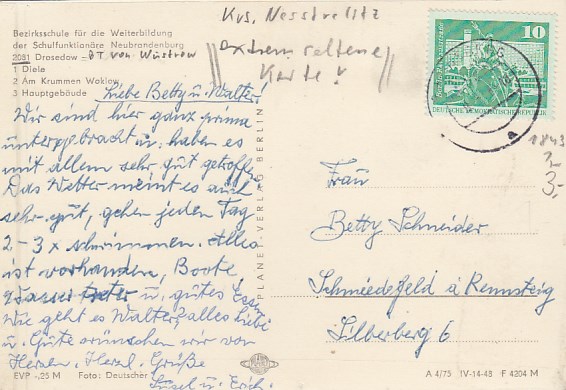 Bezirksschule für die Weiterbildung
der Schulfunktionäre Neubrandenburg
2081 Drosedow - OT von Wustrow
1 Diele
2 Am Krummen Woklow
3 Hauptgebäude
Krs. Neustrelitz
extrem seltene
Karte!
10
DEUTSCHE DEMOKRATISCHE REPUBLIK
1843
3,-
Liebe Betty u. Walter!
Wir sind hier ganz prima
untergebracht u. haben es
mit allem sehr gut getroffen.
Das Wetter meint es auch
sehr gut, gehen jeden Tag
2-3 x schwimmen. Alles
ist vorhanden, Boote,
Wassertreter u. gutes Essen
Wie geht es Walter, alles Liebe
u. Gute wünschen wir von
Herzen. Herzl. Grüße
Susel u. Erich.
PLANET-VERLAG BERLIN
Frau
Betty Schneider
Schmiedefeld a Rennsteig
Silberberg 6
EVP -,25 M Foto: Deutscher
A 4/75 IV-14-48 F 4204 M